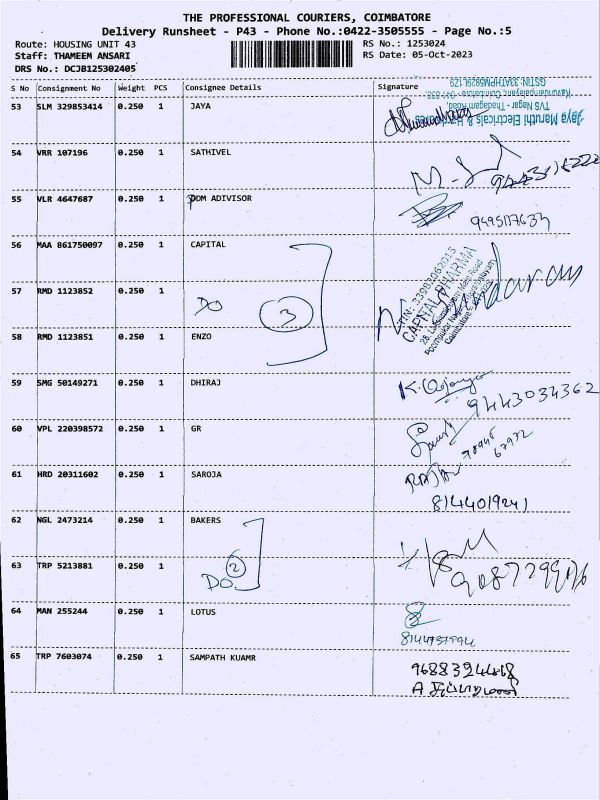 THE PROFESSIONAL COURIERS, COIMBATORE
Delivery Runsheet - P43 - Phone No.:0422-3505555 - Page No.:5
Route: HOUSING UNIT 43 RS No.: 1253024
Staff: THAMEEM ANSARI RS Date: 05-Oct-2023
DRS No.: DCJB125302405
S No Consignment No Weight PCS Consignee Details Signature
Jaya Maruthi Electricals &
TVS Nagar - Thadagam Road,
53 SLM 329853414 0.250 1 JAYA
54 VRR 107196 0.250 1 SATHIVEL
55 VLR 4647687 0.250 1 PDM ADIVISOR
9495117633
56 MAA 861750097 0.250 1 CAPITAL
CAPITAL PHARMA
57 RMD 1123852 0.250 1
DO 3
58 RMD 1123851 0.250 1 ENZO
59 SMG 50149271 0.250 1 DHIRAJ
9443034362
60 VPL 220398572 0.250 1 GR
61 HRD 20311602 0.250 1 SAROJA
RAJA
8144019241
62 NGL 2473214 0.250 1 BAKERS
63 TRP 5213881 0.250 1
DO 2
64 MAN 255244 0.250 1 LOTUS
65 TRP 7603074 0.250 1 SAMPATH KUAMR